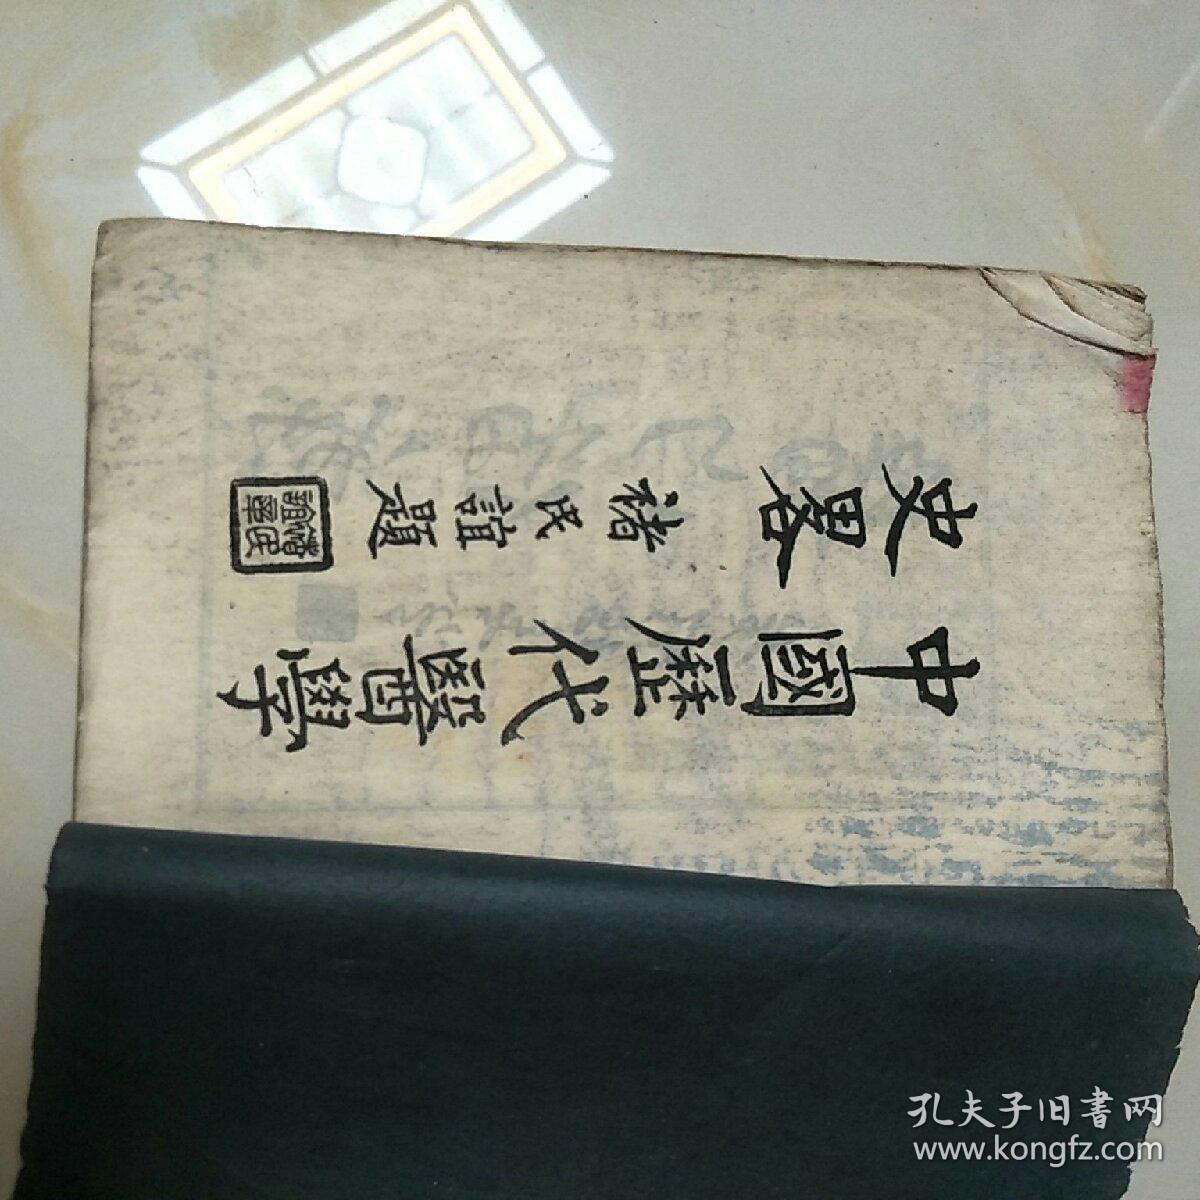 中國歷代醫學
史畧
褚民誼題
孔夫子旧書网
www.kongfz.com